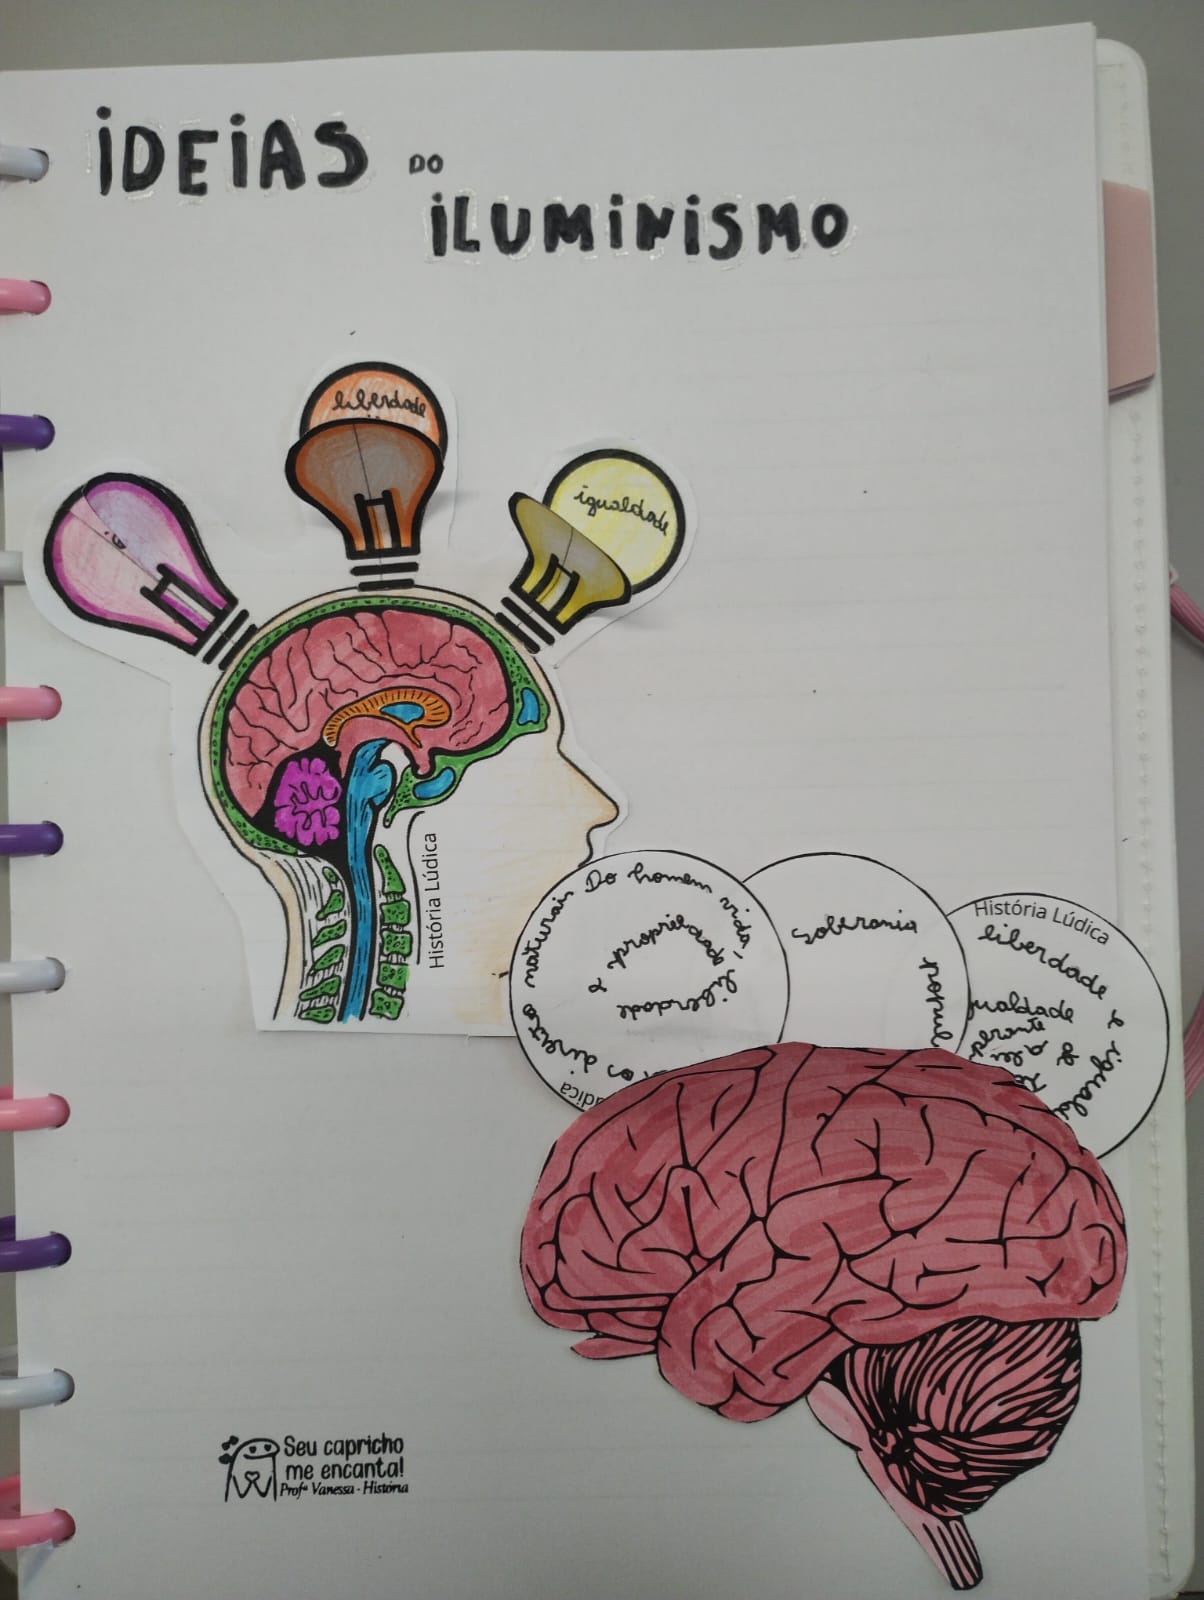 IDEIAS DO
ILUMINISMO
liberdade
igualdade
História Lúdica
os direito naturais Do homem vida,
liberdade e propriedade
Soberania
popul
História Lúdica
liberdade e iguald
ualdade
perante
a lei
de
údica
Seu capricho
me encanta!
Profª Vanessa - História